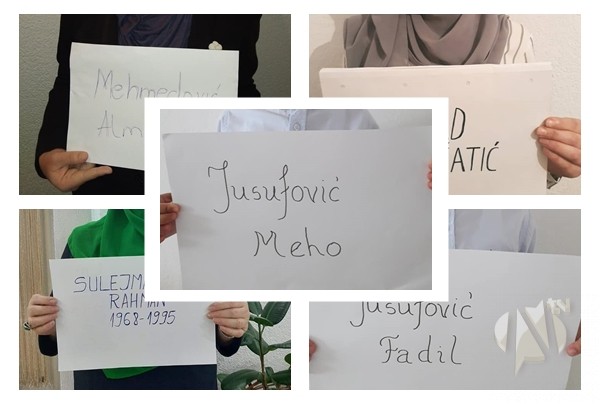 Mehmedović
Alm
D
ATIĆ
Jusufović
Meho
SULEJMA
RAHMAN
1968-1995
Jusufović
Fadil